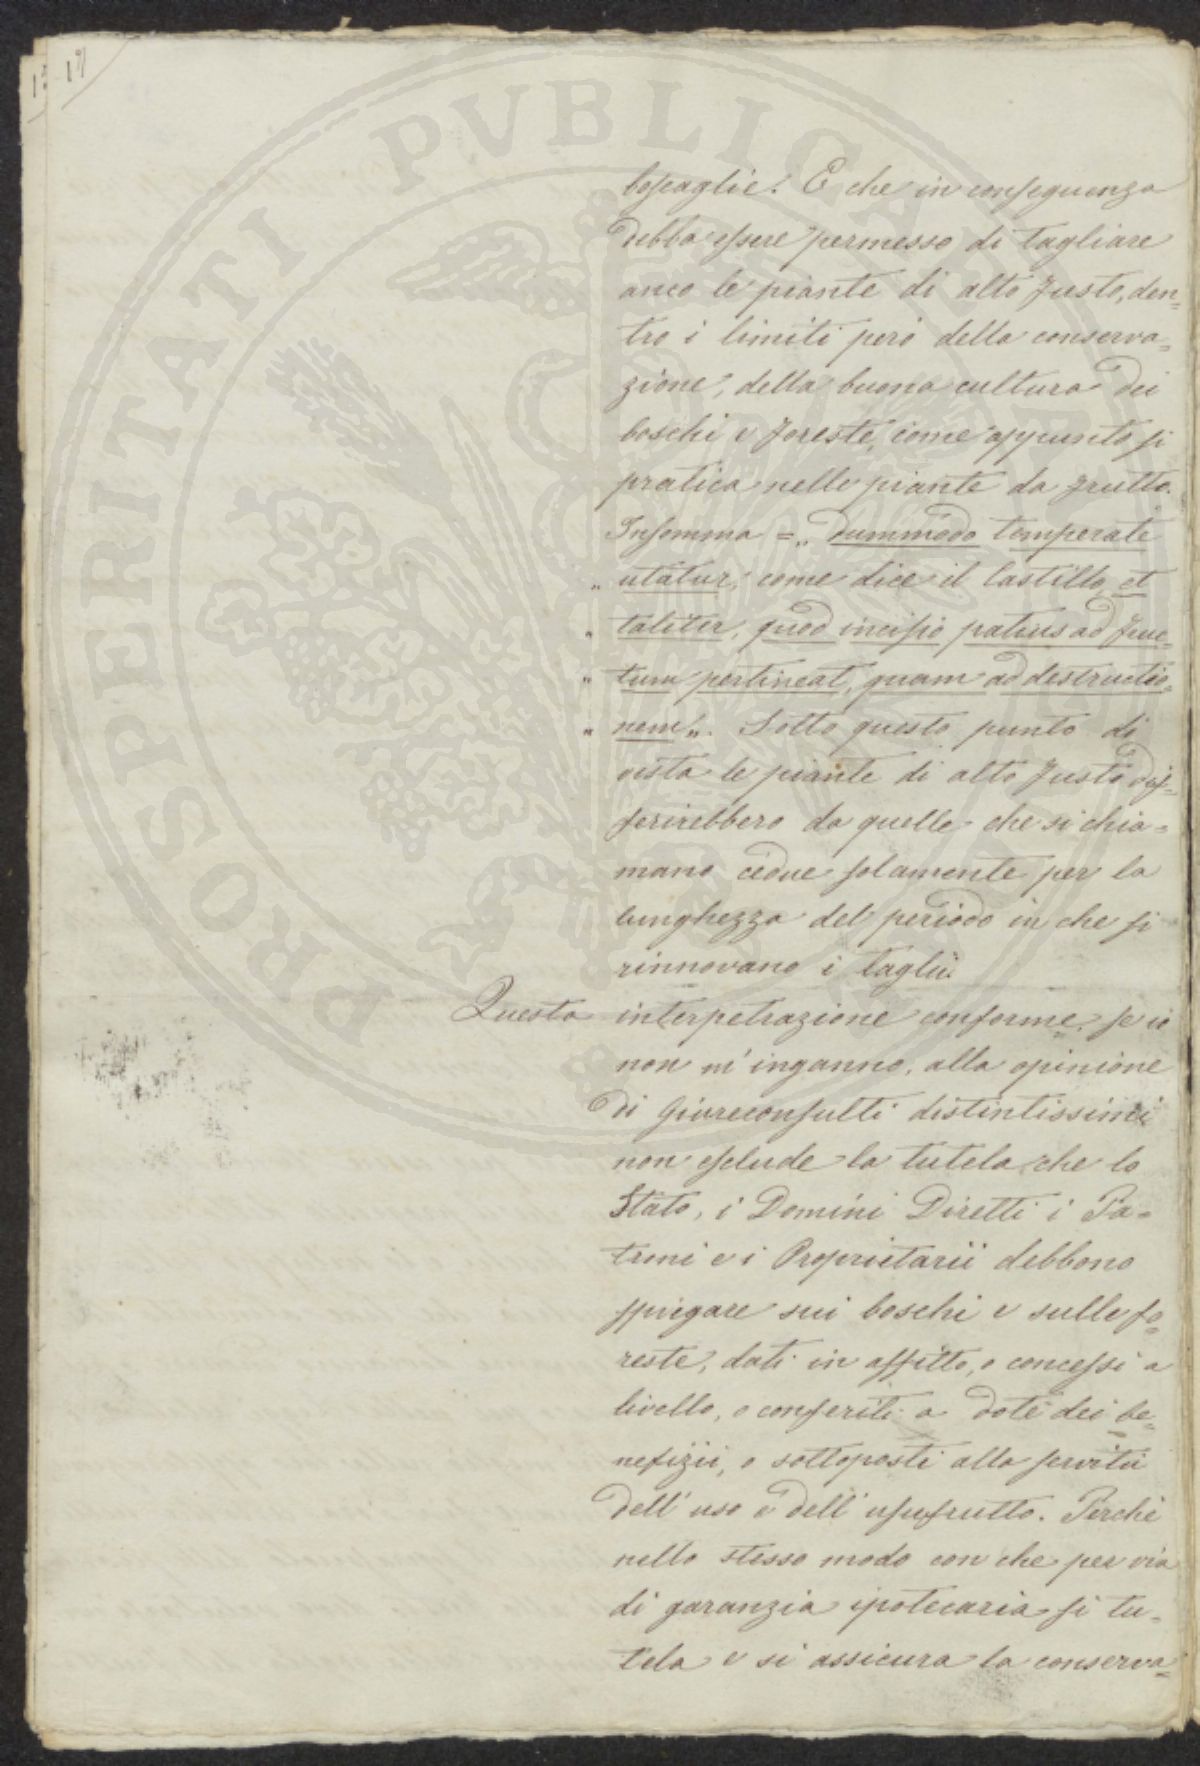 17
boscaglie. E che in conseguenza
debba essere permesso di tagliare
anco le piante di alto fusto, den=
tro i limiti però della conserva=
zione, della buona cultura dei
boschi e foreste, come appunto si
pratica nelle piante da frutto.
Insomma = „ dummodo temperate
„ utatur, come dice il Castillo, et
„ taliter, quod incisio potius ad fruc=
„ tum pertineat, quam ad destructio=
„ nem „. Sotto questo punto di
vista le piante di alto fusto dif=
ferirebbero da quelle che si chia=
mano cedue solamente per la
lunghezza del periodo in che si
rinnovano i taglii.
Questa interpetrazione conforme, se io
non m'inganno, alla opinione
di Giureconsulti distintissimi
non esclude la tutela che lo
Stato, i Domini Diretti i Pa=
troni e i Proprietarii debbono
spiegare sui boschi e sulle fo=
reste, dati in affitto, o concessi a
livello, o conferiti a dote dei be=
nefizii, o sottoposti alla servitù
dell'uso e dell'usufrutto. Perchè
nello stesso modo con che per via
di garanzia ipotecaria si tu=
tela e si assicura la conserva=
PROSPERITATI PVBLICAE